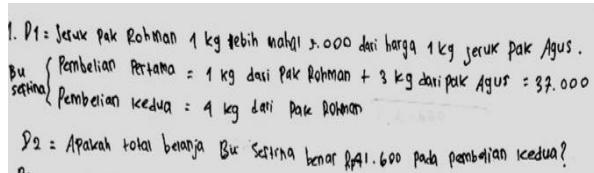 1. D1 = Jeruk Pak Rohman 1 kg lebih mahal 5.000 dari harga 1 kg jeruk Pak Agus.
Bu Sestina { Pembelian Pertama = 1 kg dari Pak Rohman + 3 kg dari Pak Agus = 37.000
Pembelian kedua = 4 kg dari Pak Rohman
D2 = Apakah total belanja Bu Sestina benar Rp41.600 pada pembelian kedua?